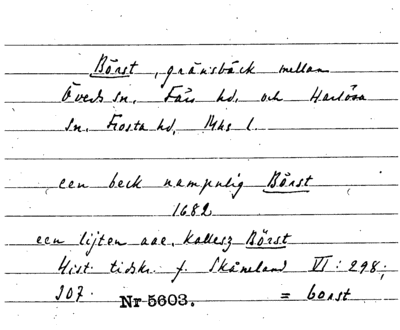 Börst, gränsbäck mellan
Öveds sn. Färs hd. och Harlösa
sn. Frosta hd, Mhs l.
een beck nampnlig Börst
1682
een lijten aae, kallesz Börst
Hist. tidskr. f. Skåneland VI: 298;
307.
Nr 5603. = borst